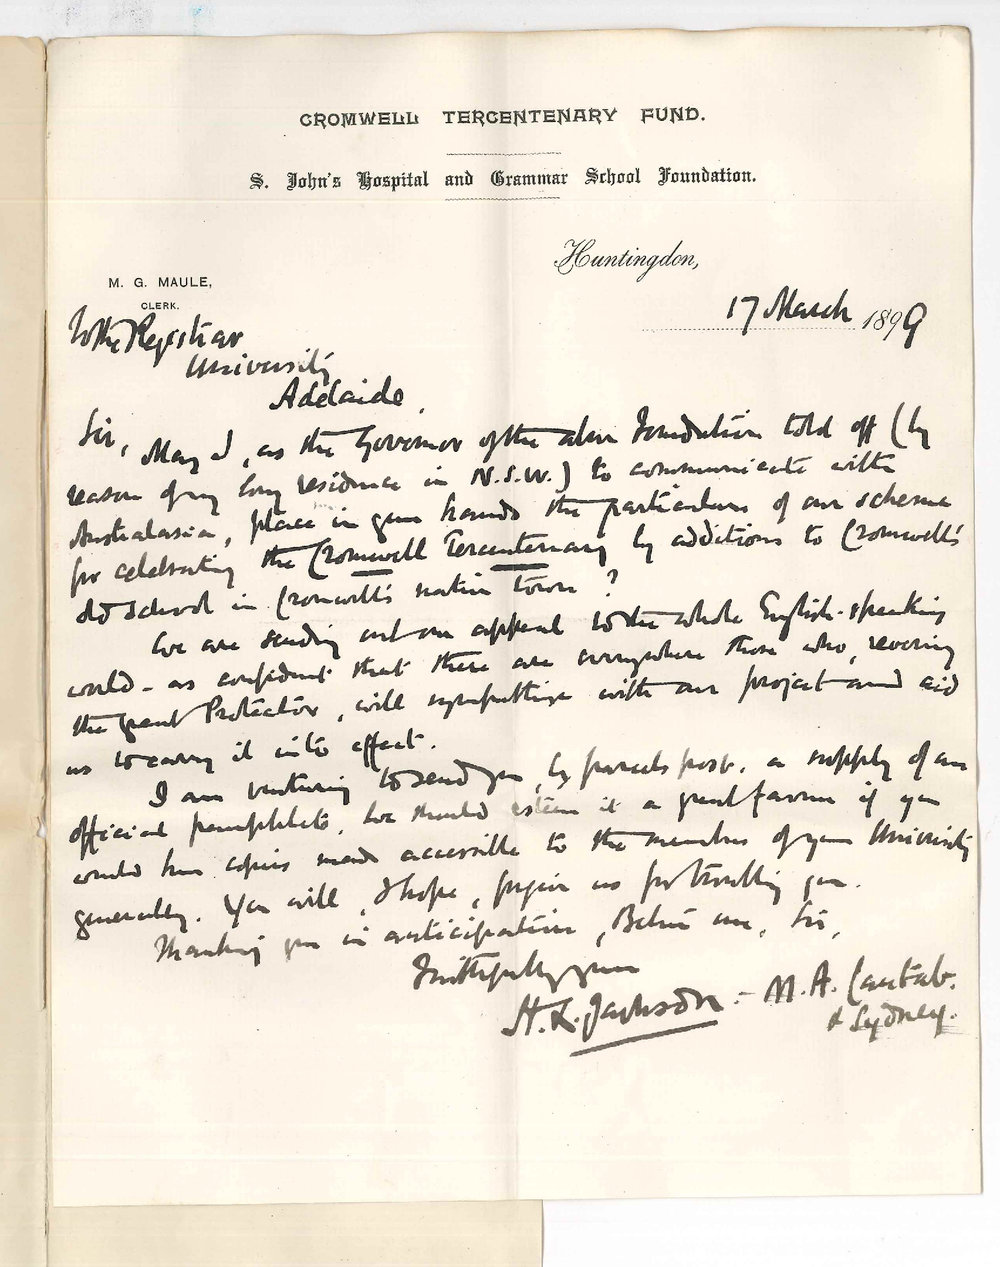 CROMWELL TERCENTENARY FUND.
S. John's Hospital and Grammar School Foundation.
Huntingdon,
M. G. MAULE,
CLERK.
17 March 1899
To the Registrar
University
Adelaide.
Sir,
May I, as the Governor of the above Foundation told off (by
reason of my long residence in N.S.W.) to communicate with
Australasia, place in your hands the particulars of our scheme
for celebrating the Cromwell Tercentenary by additions to Cromwell's
old school in Cromwell's native town?
We are sending out our appeal to the whole English-speaking
world - as confident that there are everywhere those who, revering
the great Protector, will sympathise with our project and aid
us to carry it into effect.
I am venturing to send you, by parcels post, a supply of our
official pamphlets. We should esteem it a great favour if you
would have copies made accessible to the members of your University
generally. You will, I hope, forgive us for troubling you.
Thanking you in anticipation, Believe me, Sir,
Faithfully yours
H. L. Jackson - M.A. Cantab.
& Sydney.